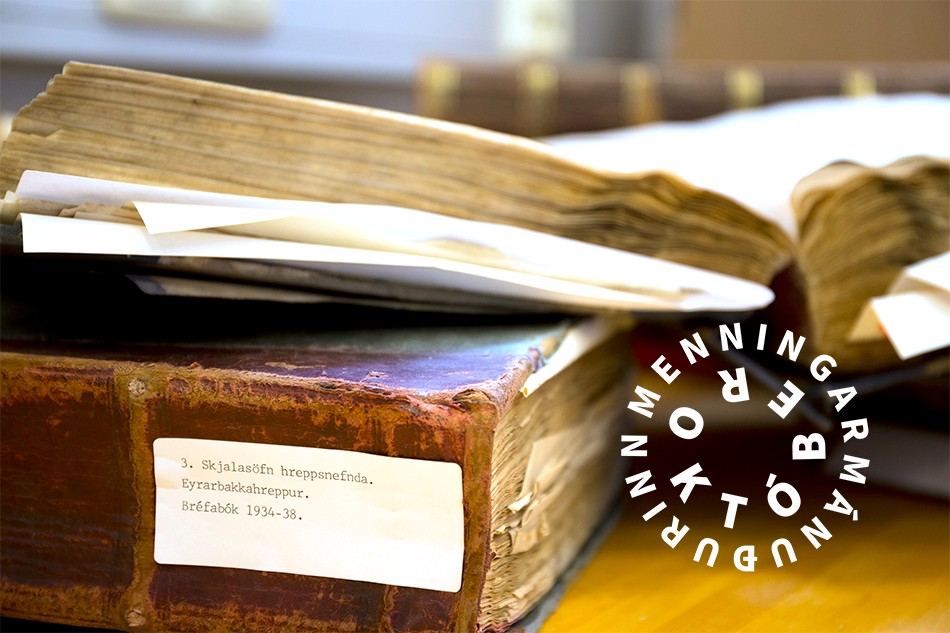 3. Skjalasöfn hreppsnefnda.
Eyrarbakkahreppur.
Bréfabók 1934-38.
MENNINGARMÁNUÐURINN
OKTÓBER